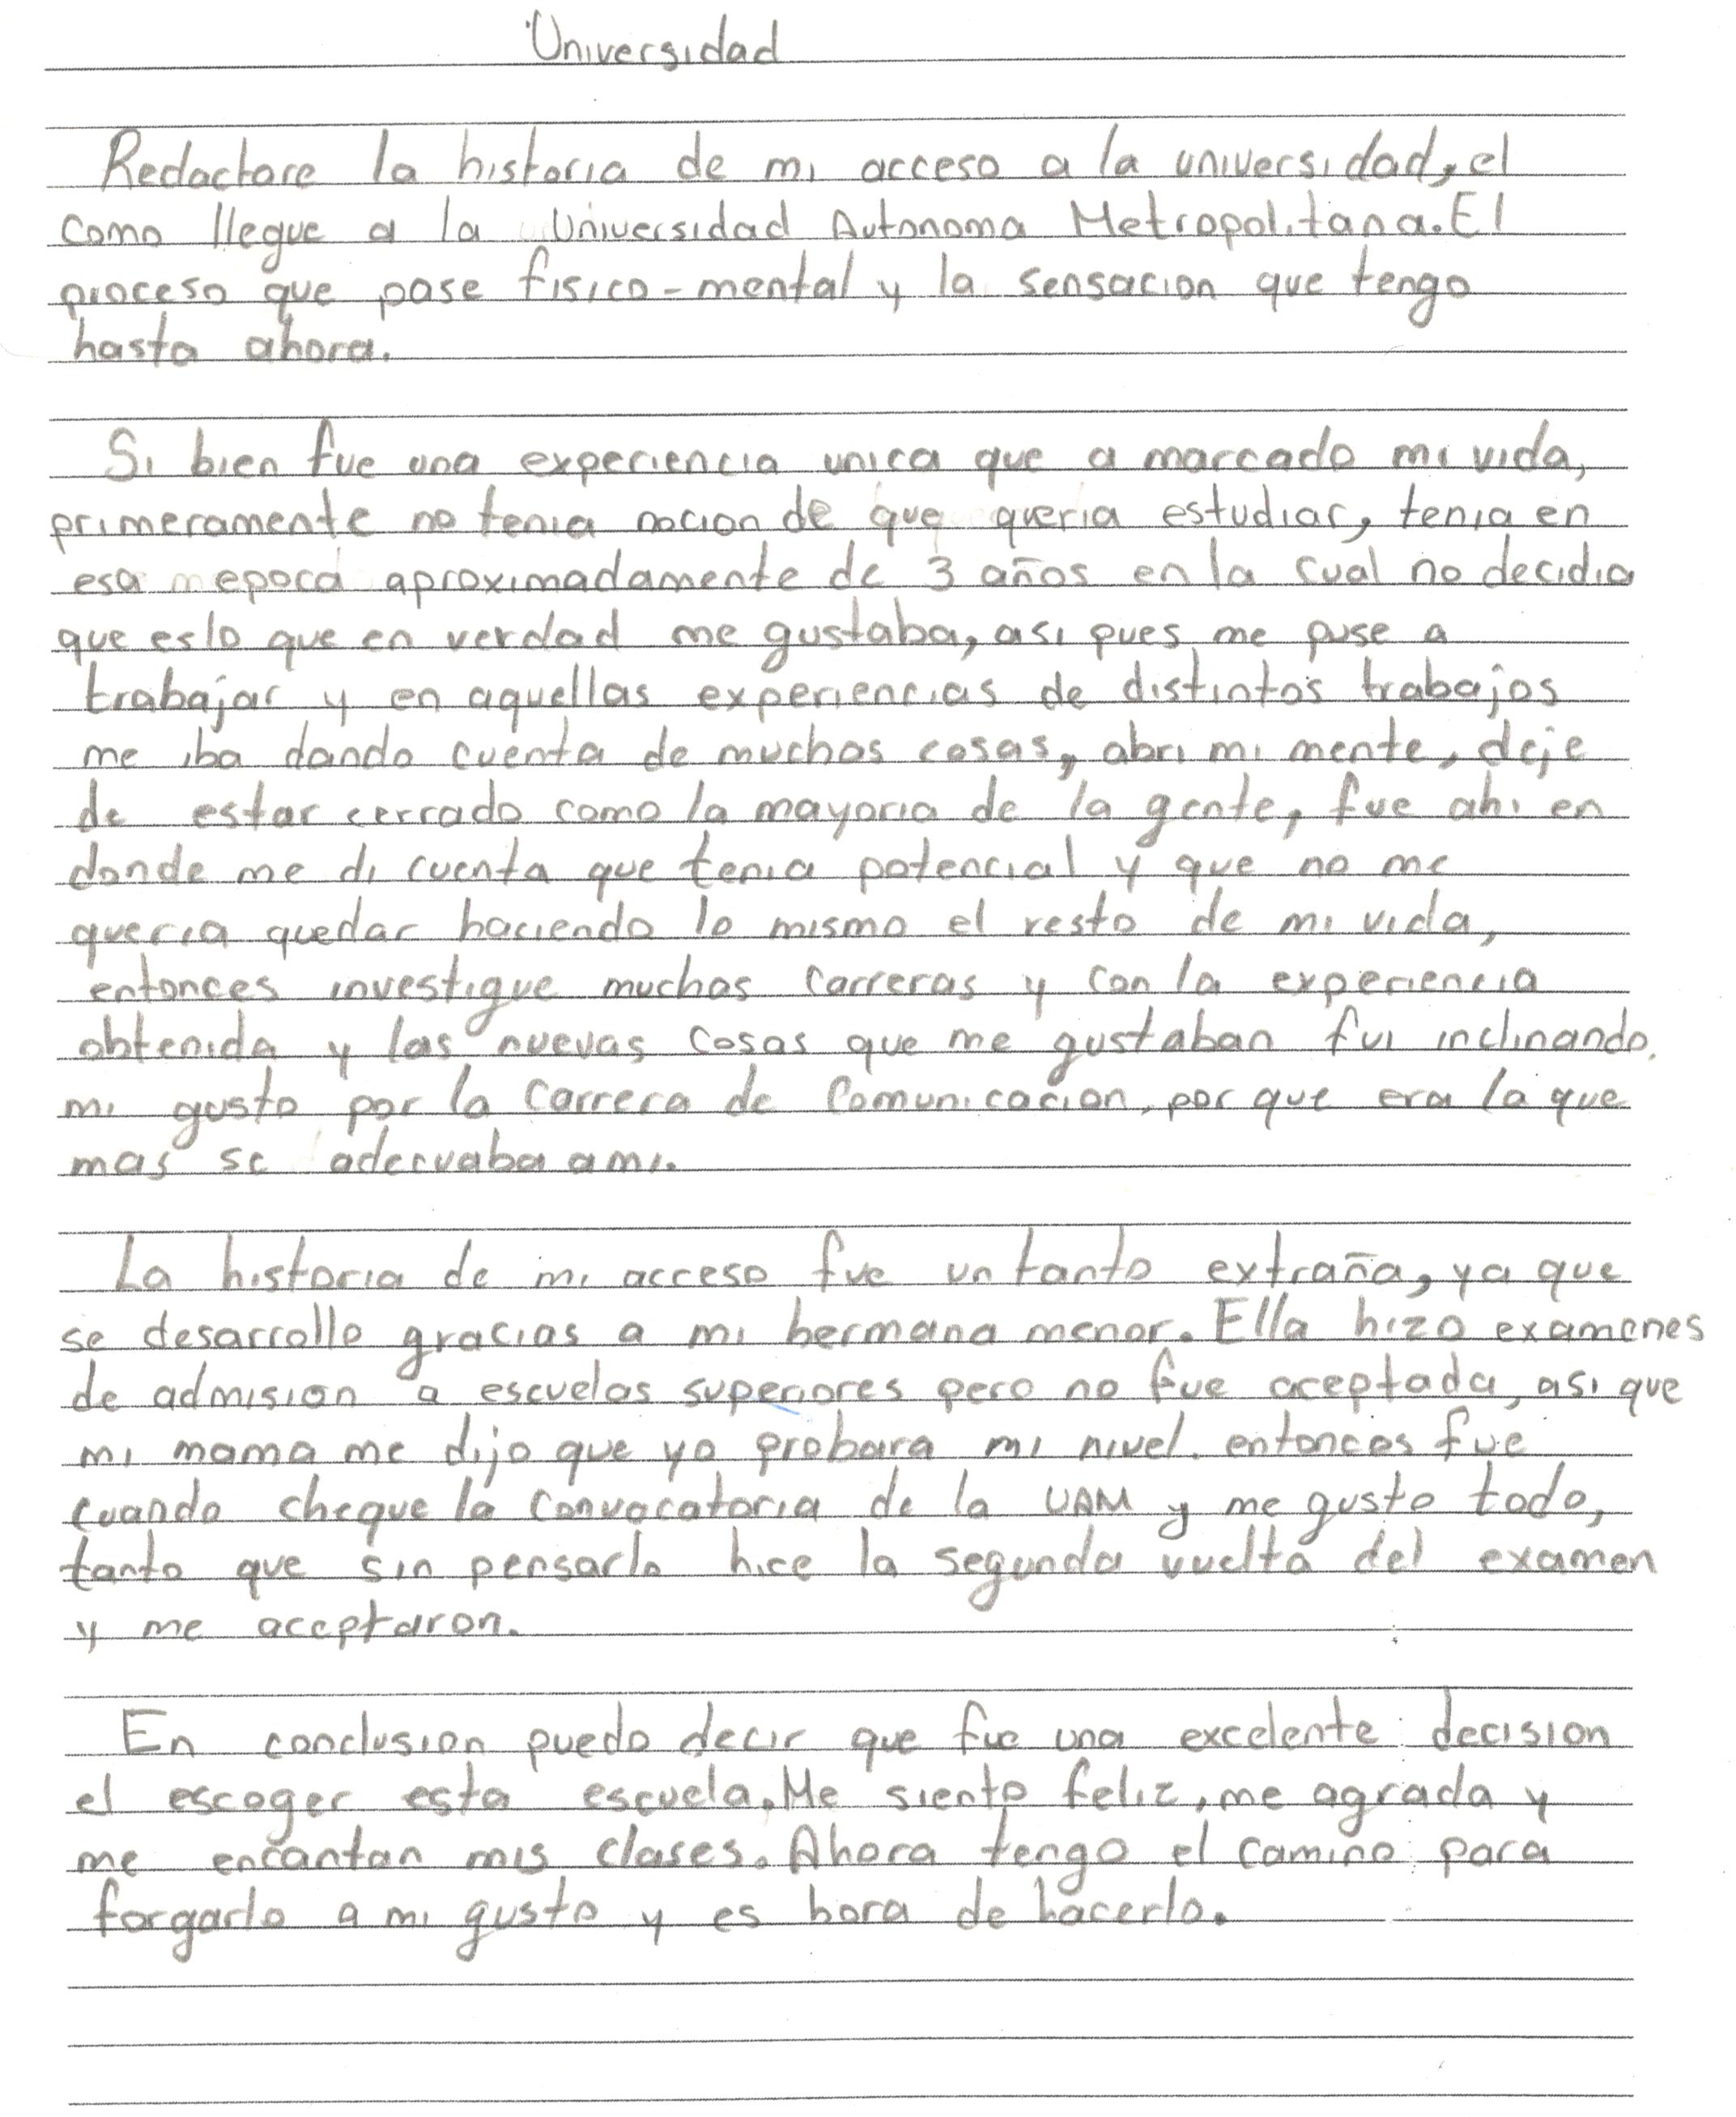 Universidad
Redactare la historia de mi acceso a la universidad, el
como llegue a la Universidad Autonoma Metropolitana. El
proceso que pase fisico-mental y la sensacion que tengo
hasta ahora.
Si bien fue una experiencia unica que a marcado mi vida,
primeramente no tenia nocion de que queria estudiar, tenia en
esa epoca aproximadamente de 3 años en la cual no decidia
que es lo que en verdad me gustaba, asi pues me puse a
trabajar y en aquellas experiencias de distintos trabajos
me iba dando cuenta de muchas cosas, abri mi mente, deje
de estar cerrado como la mayoria de la gente, fue ahi en
donde me di cuenta que tenia potencial y que no me
queria quedar haciendo lo mismo el resto de mi vida,
entonces investigue muchas carreras y con la experiencia
obtenida y las nuevas cosas que me gustaban fui inclinando
mi gusto por la carrera de Comunicacion, por que era la que
mas se adecuaba a mi.
La historia de mi acceso fue un tanto extraña, ya que
se desarrollo gracias a mi hermana menor. Ella hizo examenes
de admision a escuelas superiores pero no fue aceptada, asi que
mi mama me dijo que yo probara mi nivel. entonces fue
cuando cheque la convocatoria de la UAM y me gusto todo,
tanto que sin pensarlo hice la segunda vuelta del examen
y me aceptaron.
En conclusion puedo decir que fue una excelente decision
el escoger esta escuela. Me siento feliz, me agrada y
me encantan mis clases. Ahora tengo el camino para
forgarlo a mi gusto y es hora de hacerlo.